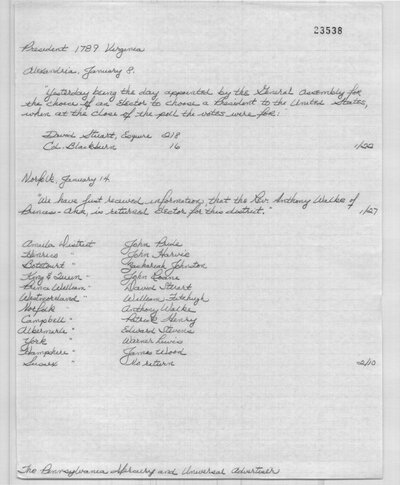 23538
President 1789 Virginia
Alexandria, January 8.
"Yesterday being the day appointed by the General Assembly for
the choice of an Elector to choose a President to the United States,
when at the close of the poll the votes were for:
David Stuart, Esquire 218
Col. Blackburn 16 1/22
Norfolk, January 14.
"We have just received information, that the Rev. Anthony Walke of
Princess-Ann, is returned Elector for this district." 1/27
Amelia District John Pride
Henrico " John Harvie
Botetourt " Zachariah Johnston
King & Queen " John Roane
Prince William " David Stuart
Westmorland " William Fitzhugh
Norfolk " Anthony Walke
Campbell " Patrick Henry
Albemarle " Edward Stevens
York " Warner Lewis
Hampshire " James Wood
Sussex " No return 2/10
The Pennsylvania Mercury and Universal Advertiser